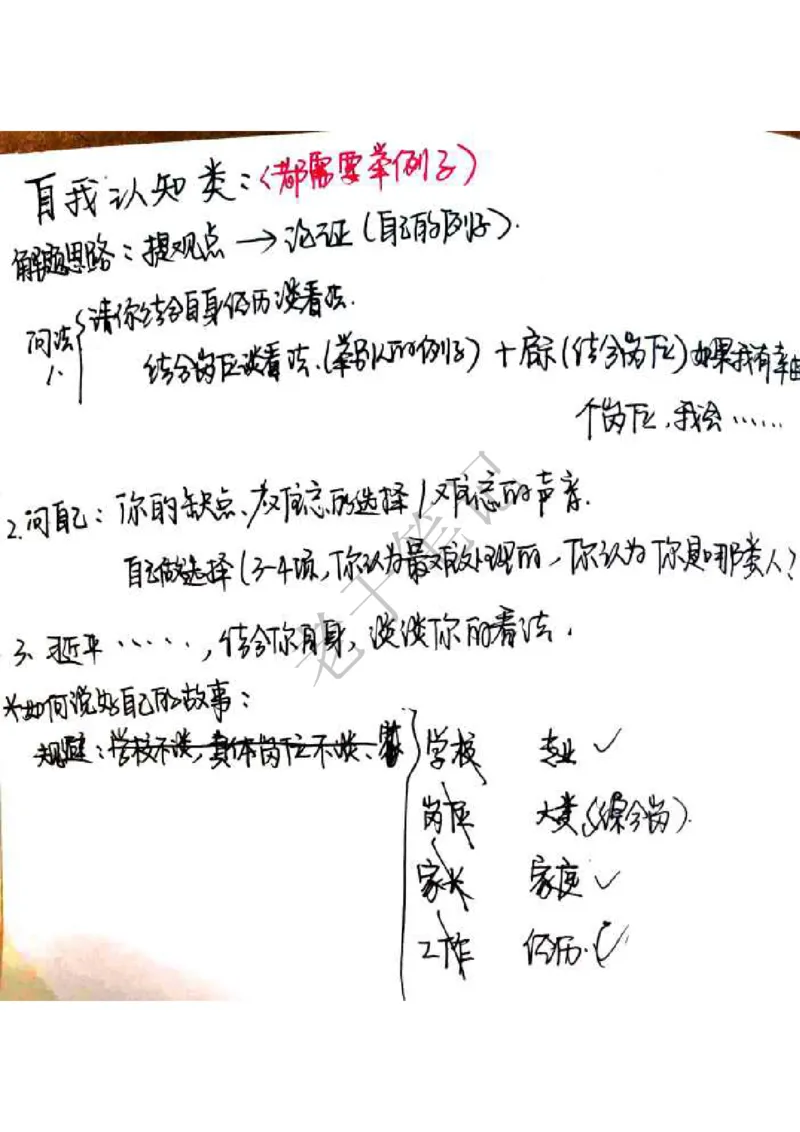 自我认知类：（都需要举例子）
解题思路：提观点 → 论证（自己的例子）.
问法1. 请你结合自身经历谈看法.
结合岗位谈看法.（举别人的例子）+启示（结合岗位）如果我有幸由
个岗位，我会……
2.问自己：你的缺点、难忘的选择/难忘的声音.
自己做选择（3-4项，你认为最难处理的，你认为你是哪类人？
3. 习近平……，结合你自身，谈谈你的看法.
*如何说好自己的故事：
规避：学校不谈，具体岗位不谈、
学校 专业 ✓
岗位 大类（综合岗）.
家长 家庭 ✓
工作 经历.
老于笔记